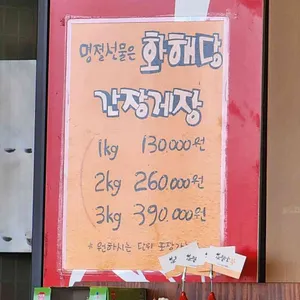 명절선물은 화해당
간장게장
1kg 130000원
2kg 260000원
3kg 390000원
* 원하시는 단위 포장가능